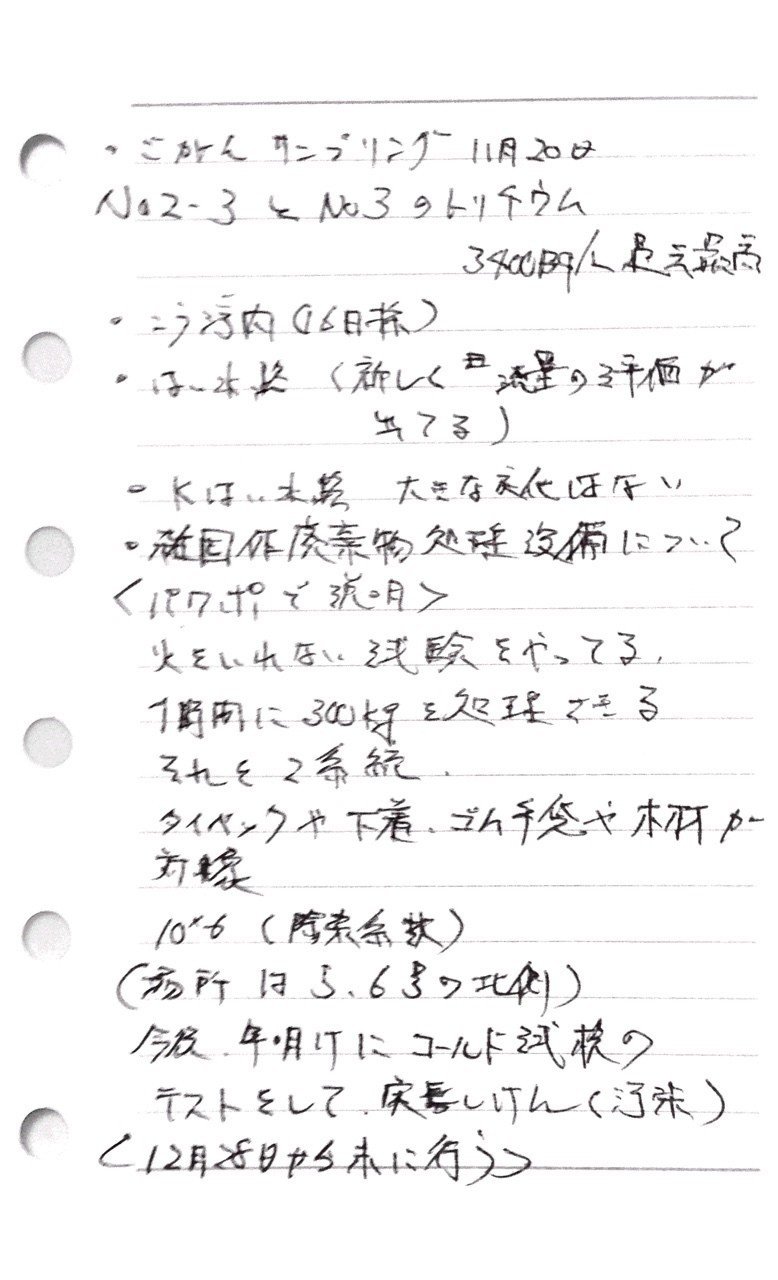 ・ごがん サンプリング 11月20日
No2-3とNo3のトリチウム
3400Bq/L 過去最高
・こう湾内(16日採)
・はい水路(新しく 流量の評価が
出てる)
・Kはい水路 大きな変化はない
・雑固体廃棄物処理設備について
<パワポで説明>
火をいれない試験をやってる.
1時間に300kgを処理できる
それを2系統.
タイベックや下着、ゴム手袋や木材が
対象
10^6(除染系数)
(場所は5.6号の北側)
今後、年明けにコールド試検の
テストをして、実しけん(汚染)
<12月28日から 行う>